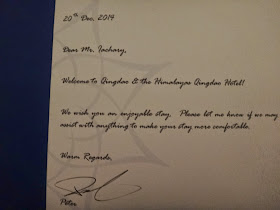 20th Dec, 2014
Dear Mr. Zachary,
Welcome to Qingdao & the Himalayas Qingdao Hotel!
We wish you an enjoyable stay. Please let me know if we may
assist with anything to make your stay more comfortable.
Warm Regards,
Peter